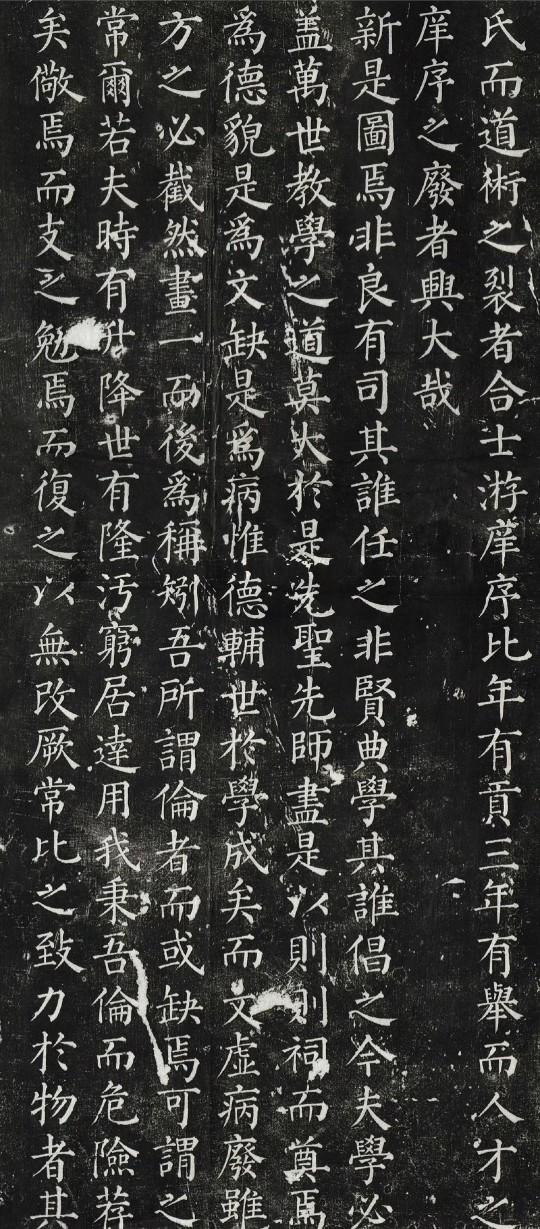 氏而道術之裂者合士游庠序比年有貢三年有舉而人才之
庠序之廢者興大哉
新是圖焉非良有司其誰任之非賢典學其誰倡之今夫學必
蓋萬世教學之道莫大於是先聖先師盡是以則則祠而奠焉
為德貌是為文缺是為病惟德輔世於學成矣而文虛病廢雖
方之必截然畫一而後為稱矧吾所謂倫者而或缺焉可謂之
常爾若夫時有升降世有隆汚窮居達用我秉吾倫而危險荐
矣儆焉而支之勉焉而復之以無改厥常比之致力於物者其